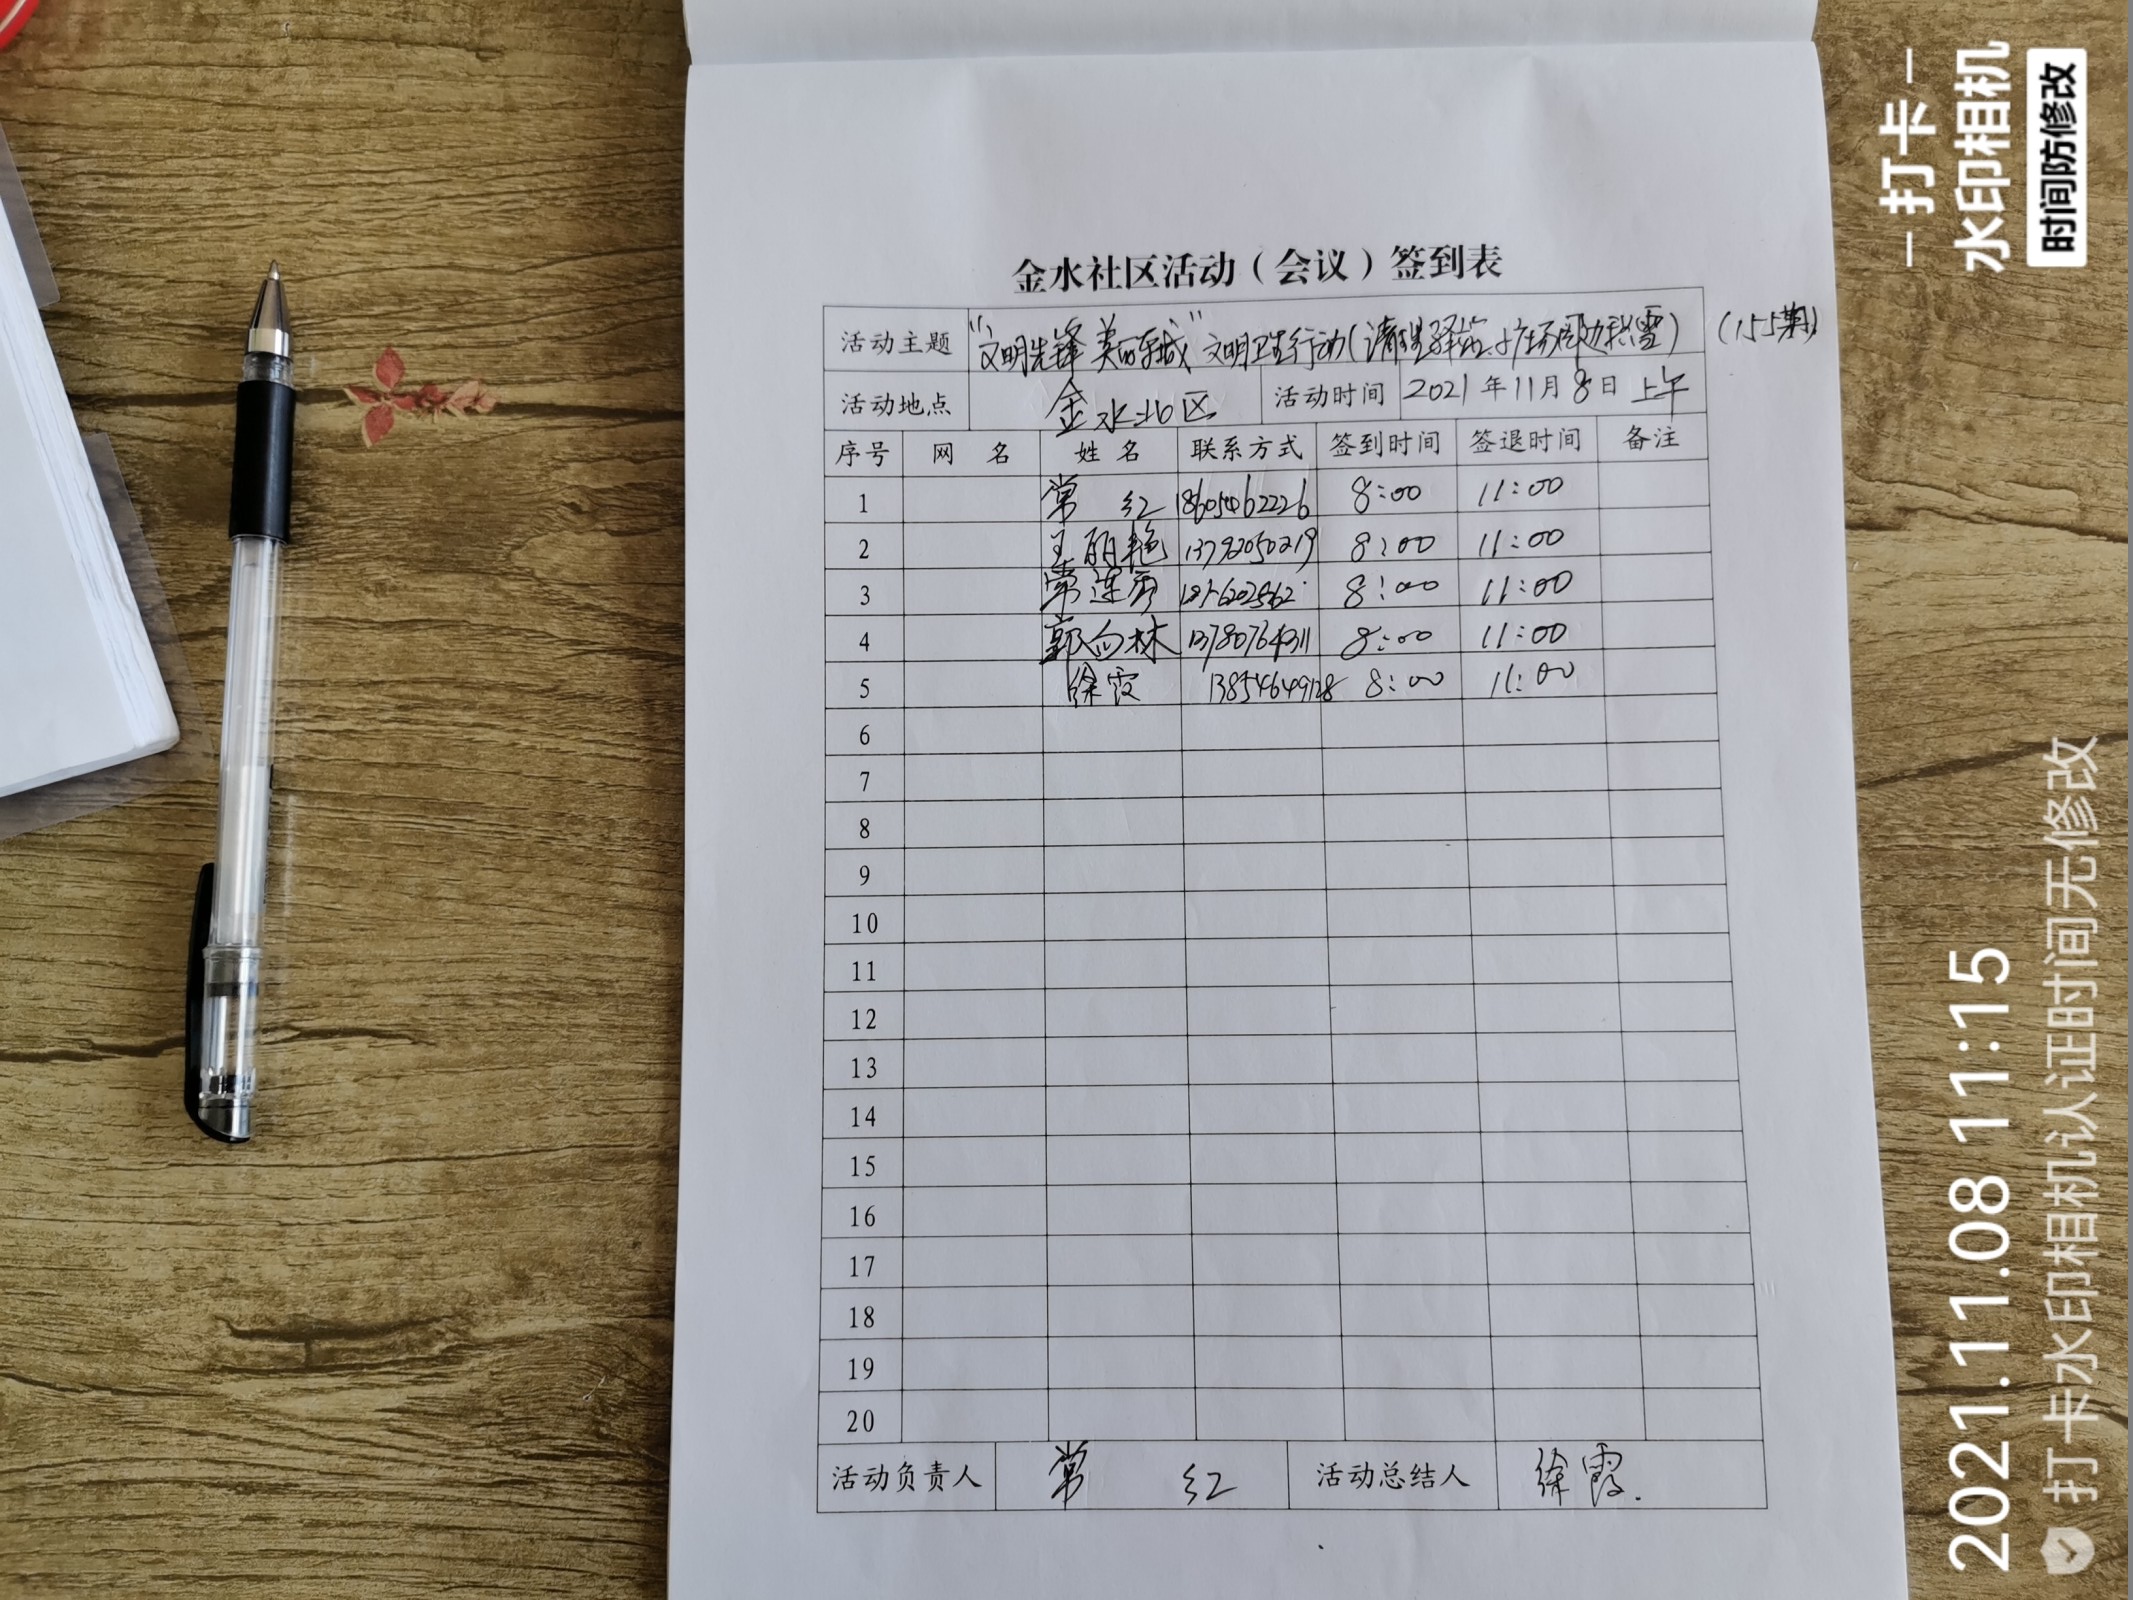 金水社区活动（会议）签到表
活动主题 “文明先锋 美丽东城”文明卫生行动（清理驿站、广场周边积雪）（155期）
活动地点 金水北区 活动时间 2021年11月8日 上午
序号 网 名 姓 名 联系方式 签到时间 签退时间 备注
1 常 红 18605462226 8:00 11:00
2 王丽艳 13792050219 8:00 11:00
3 常莲秀 8:00 11:00
4 郭向林 8:00 11:00
5 徐霞 13854649128 8:00 11:00
6
7
8
9
10
11
12
13
14
15
16
17
18
19
20
活动负责人 常 红 活动总结人 徐霞.
打卡
水印相机
时间防修改
2021.11.08 11:15
打卡水印相机认证时间无修改